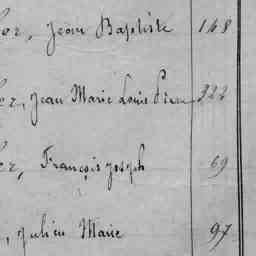 er, Jean Baptiste 148
er, Jean Marie Louis Pierre 322
er, François Joseph 69
, Julien Marie 97